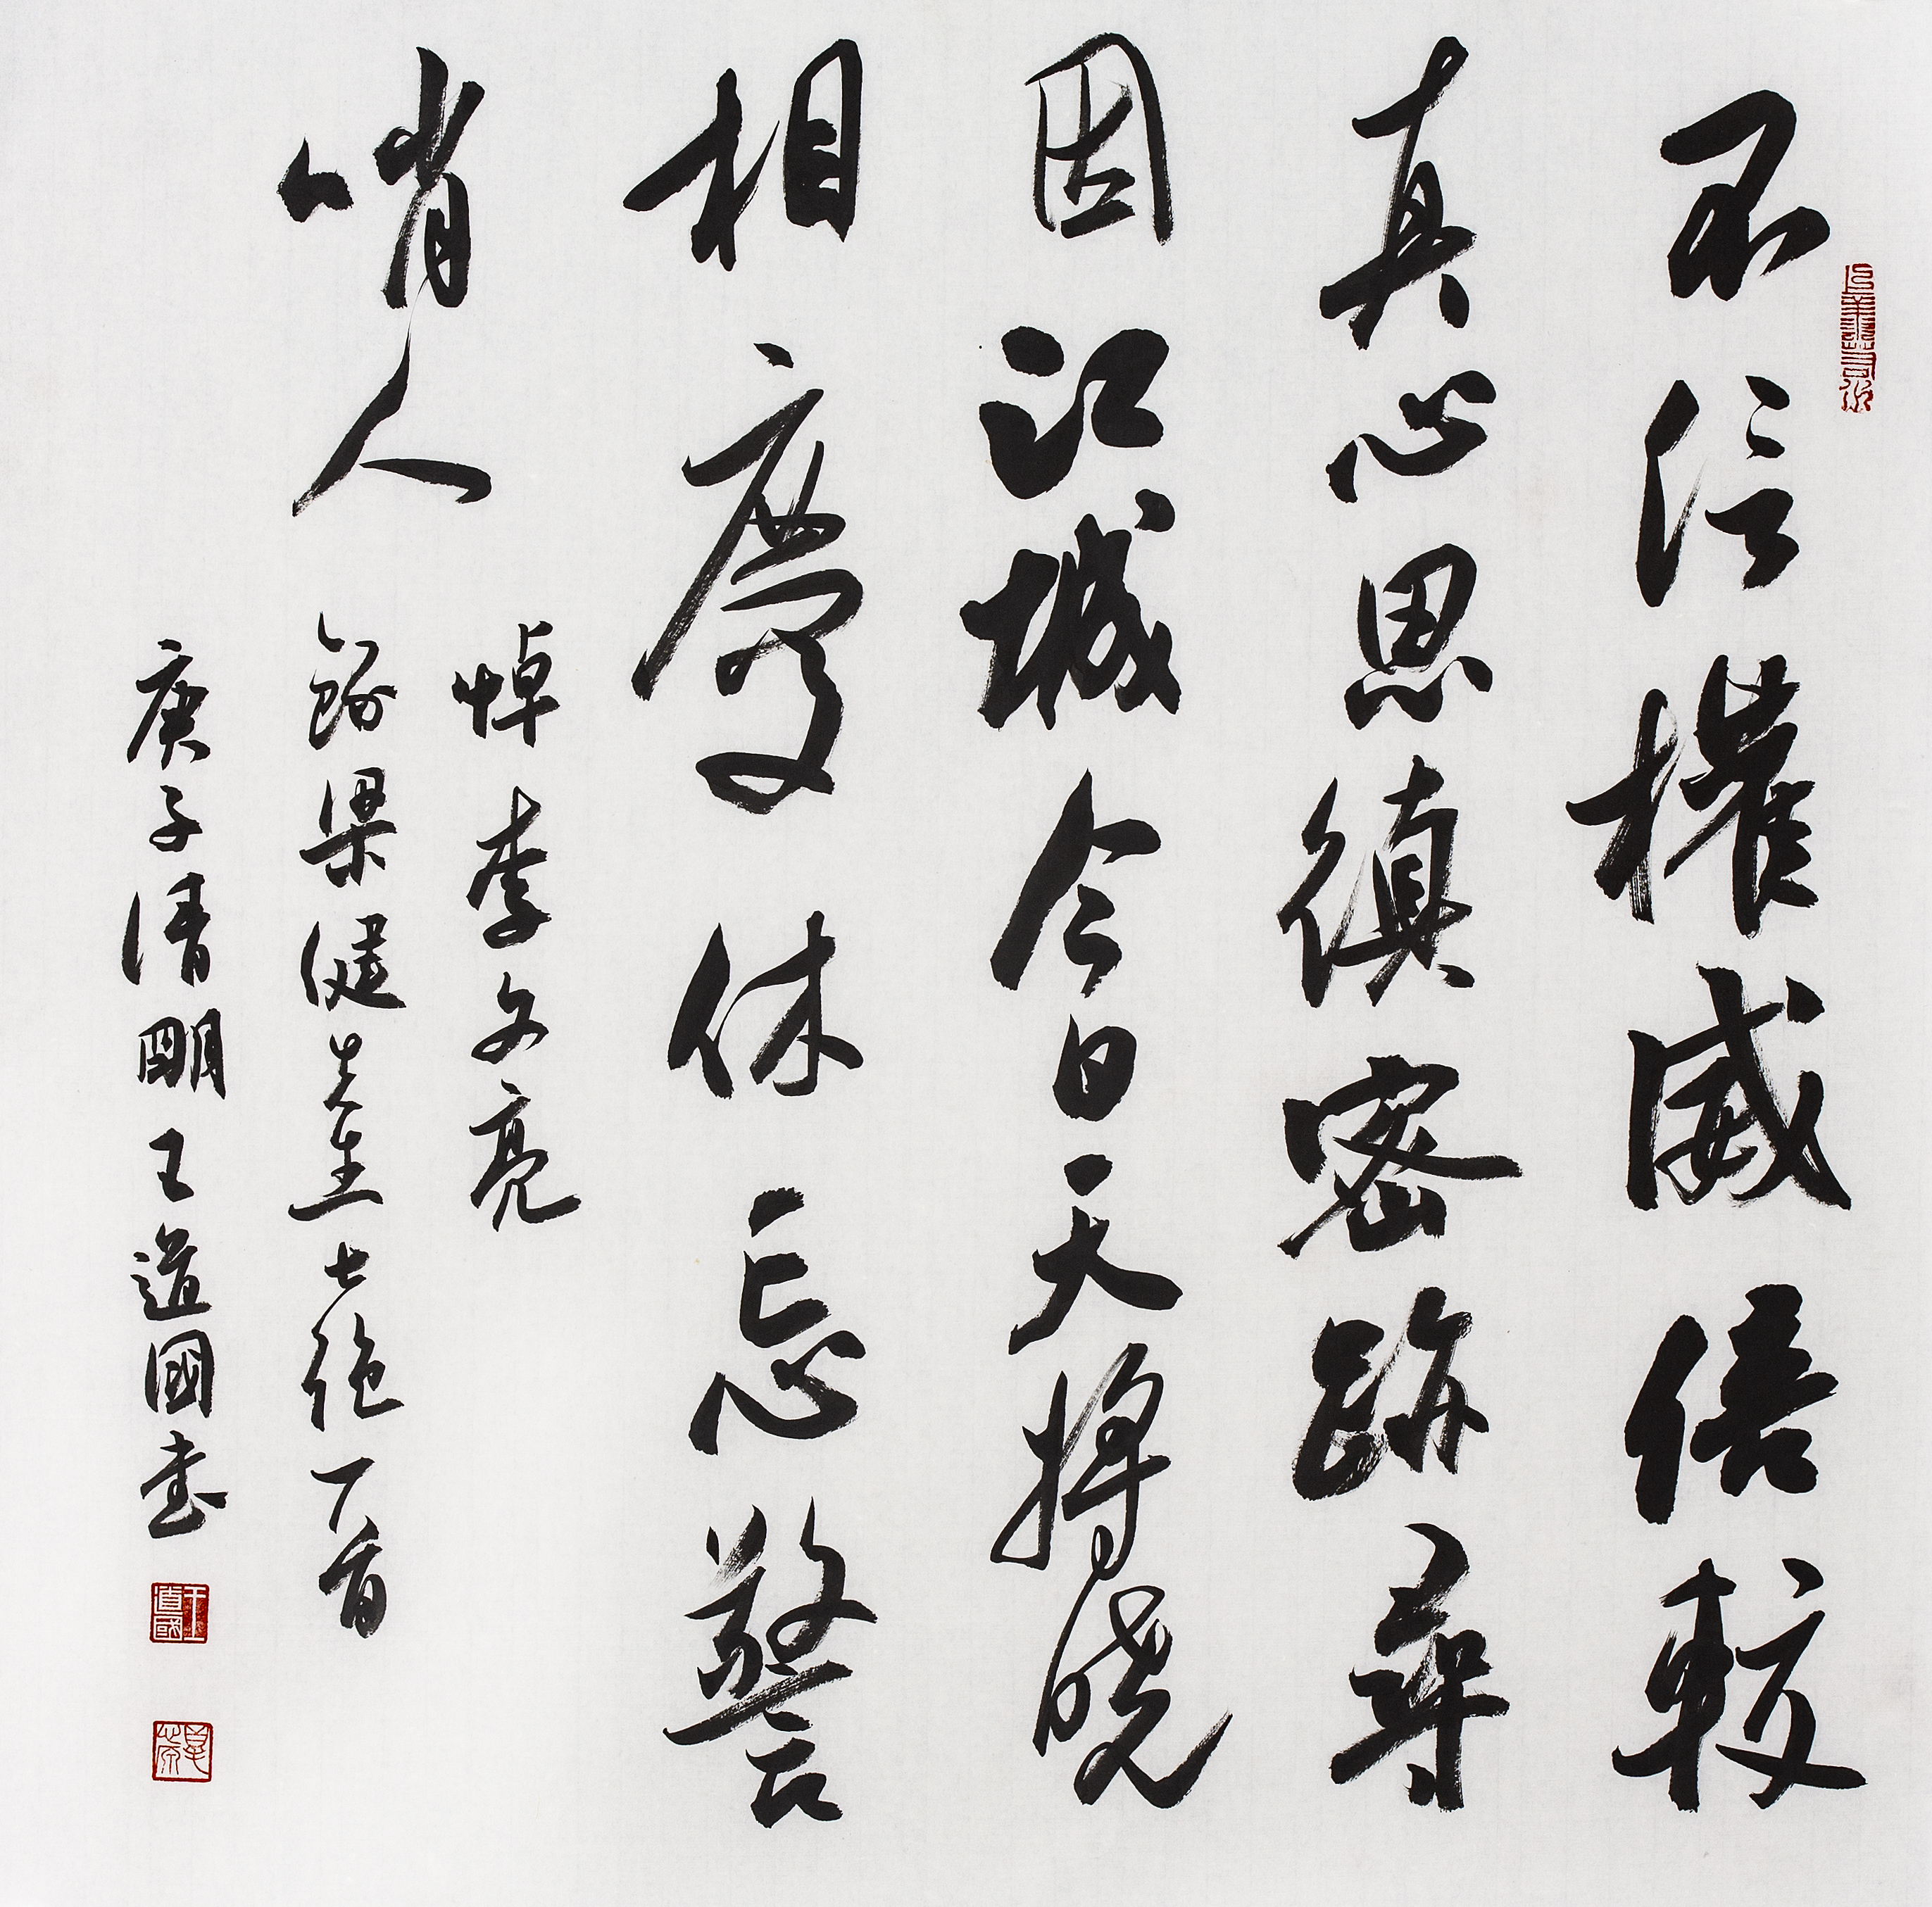 不信權威倍較
真心思縝密跡尋
因江城今日天將曉
相慶休忘警
哨人
悼李文亮
錄梁健先生七絕一首
庚子清明王道國書
王道國